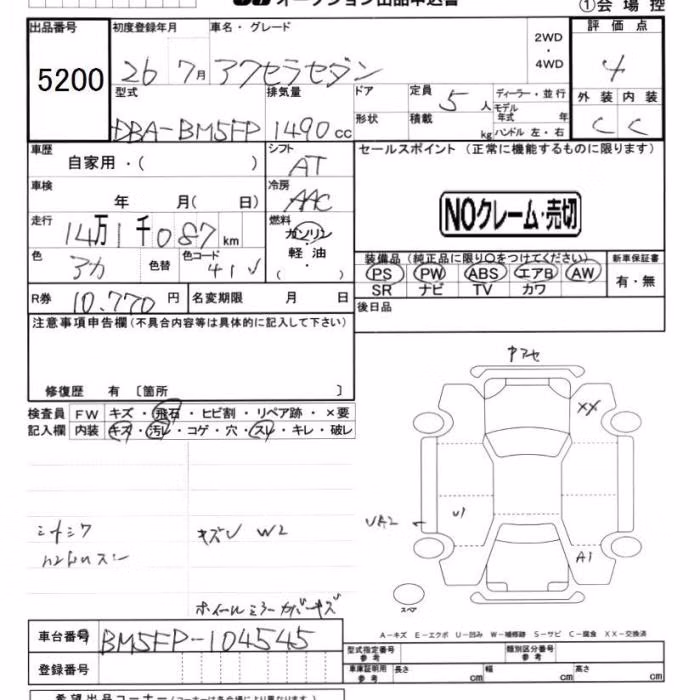 オークション出品申込書
①会場控
出品番号 初度登録年月 車名・グレード 2WD・4WD 評価点
5200 26 7月 アクセラセダン 4
型式 排気量 ドア 定員 5人 ディーラー・並行 外装 内装
DBA-BM5FP 1490cc 形状 積載 kg モデル年式 年 ハンドル 左・右 C C
車歴 自家用・( ) シフト AT セールスポイント (正常に機能するものに限ります)
車検 年 月( 日) 冷房 AAC
NOクレーム・売切
走行 14万1千087km 燃料 ガソリン・軽油・( )
色 アカ 色替 色コード 41V
装備品(純正品に限り○をつけてください) 新車保証書
PS PW ABS エアB AW 有・無
SR ナビ TV カワ
R券 10,770円 名変期限 月 日 後日品
注意事項申告欄(不具合内容等は具体的に記入して下さい)
修復歴 有 〔箇所 〕
検査員 FW キズ・飛石・ヒビ割・リペア跡・×要
記入欄 内装 キズ・汚レ・コゲ・穴・スレ・キレ・破レ
XX
U1
A1
キズU W2
ホイールミラーカバーキズ
スペア
A−キズ E−エクボ U−凹み W−補修跡 S−サビ C−腐食 XX−交換済
車台番号 BM5FP-104545
型式指定番号 類別区分番号
登録番号 車庫証明用参考 長さ cm 幅 cm 高さ cm
希望出品コーナー(コーナーは各会場により異なります)